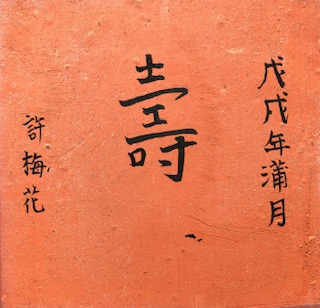 戊戌年蒲月
壽
許梅花